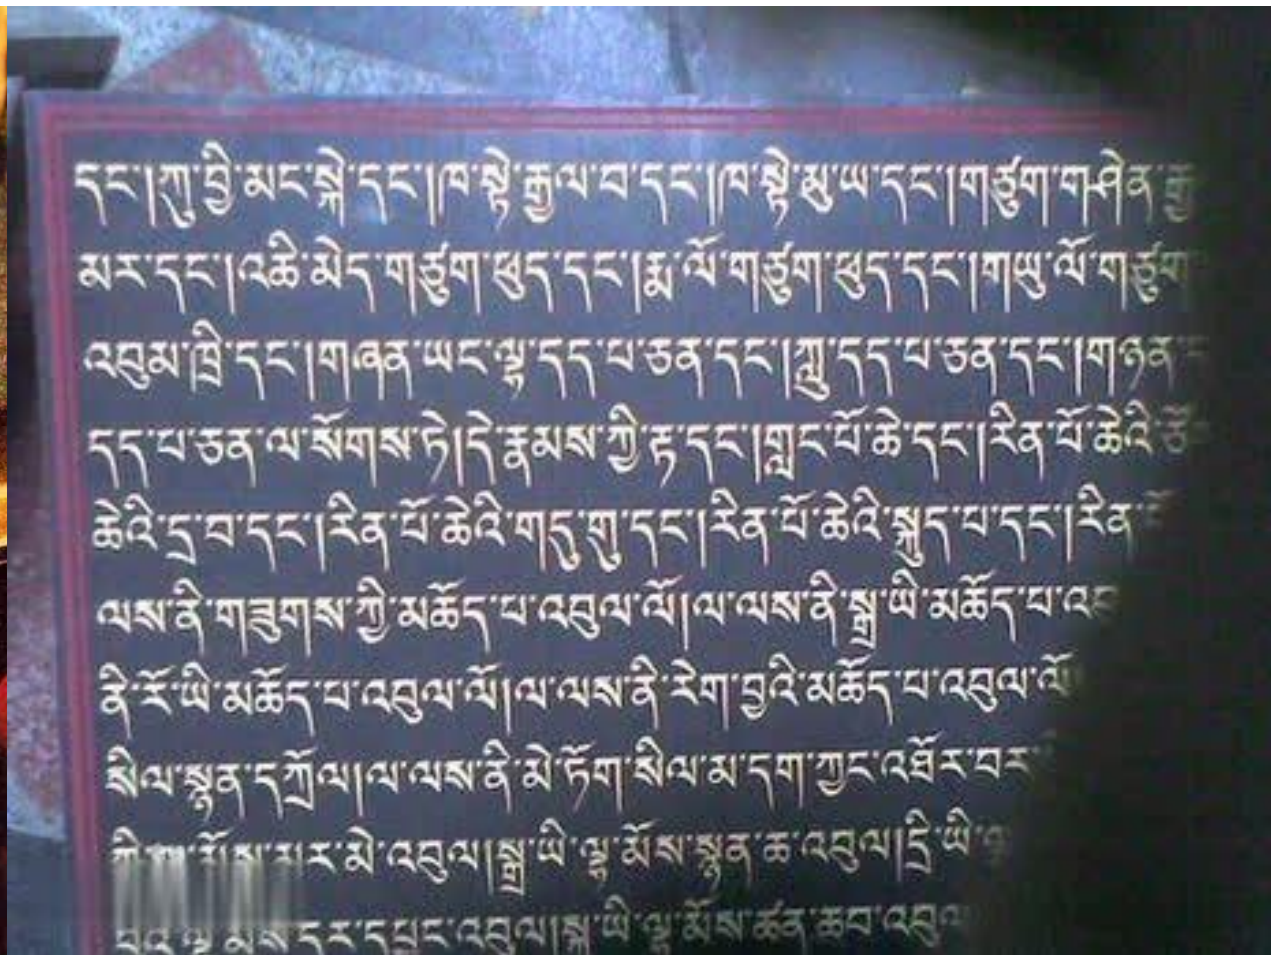 དང་།ཀུ་བྱི་མང་སྐེ་དང་།ཁ་སྟེ་རྒྱལ་བ་དང་།ཁ་སྟེ་མུ་ཡ་དང་།གཙུག་གཤེན་རྒྱ
མར་དང་།འཆི་མེད་གཙུག་ཕུད་དང་།རྨ་ལོ་གཙུག་ཕུད་དང་།གཡུ་ལོ་གཙུག
འབུམ་ཁྲི་དང་།གཞན་ཡང་ལྷ་དད་པ་ཅན་དང་།ཀླུ་དད་པ་ཅན་དང་།གཉན
དད་པ་ཅན་ལ་སོགས་ཏེ།དེ་རྣམས་ཀྱི་རྟ་དང་།གླང་པོ་ཆེ་དང་།རིན་པོ་ཆེའི
ཆེའི་དྲ་བ་དང་།རིན་པོ་ཆེའི་གདུ་གུ་དང་།རིན་པོ་ཆེའི་སྐུད་པ་དང་།རིན
ལས་ནི་གཟུགས་ཀྱི་མཆོད་པ་འབུལ་ལོ།ལ་ལས་ནི་སྒྲ་ཡི་མཆོད་པ
ནི་རོ་ཡི་མཆོད་པ་འབུལ་ལོ།ལ་ལས་ནི་རེག་བྱའི་མཆོད་པ་འབུལ་ལོ
སིལ་སྙན་དཀྲོལ།ལ་ལས་ནི་མེ་ཏོག་སིལ་མ་དག་ཀྱང་འཐོར་བར
མར་མེ་འབུལ།སྒྲ་ཡི་ལྷ་མོས་སྙན་ཆ་འབུལ།དྲི་ཡི
དར་དཔྱང་འབུལ།ལྷ་མོས་ཚན་ཆབ་འབུལ